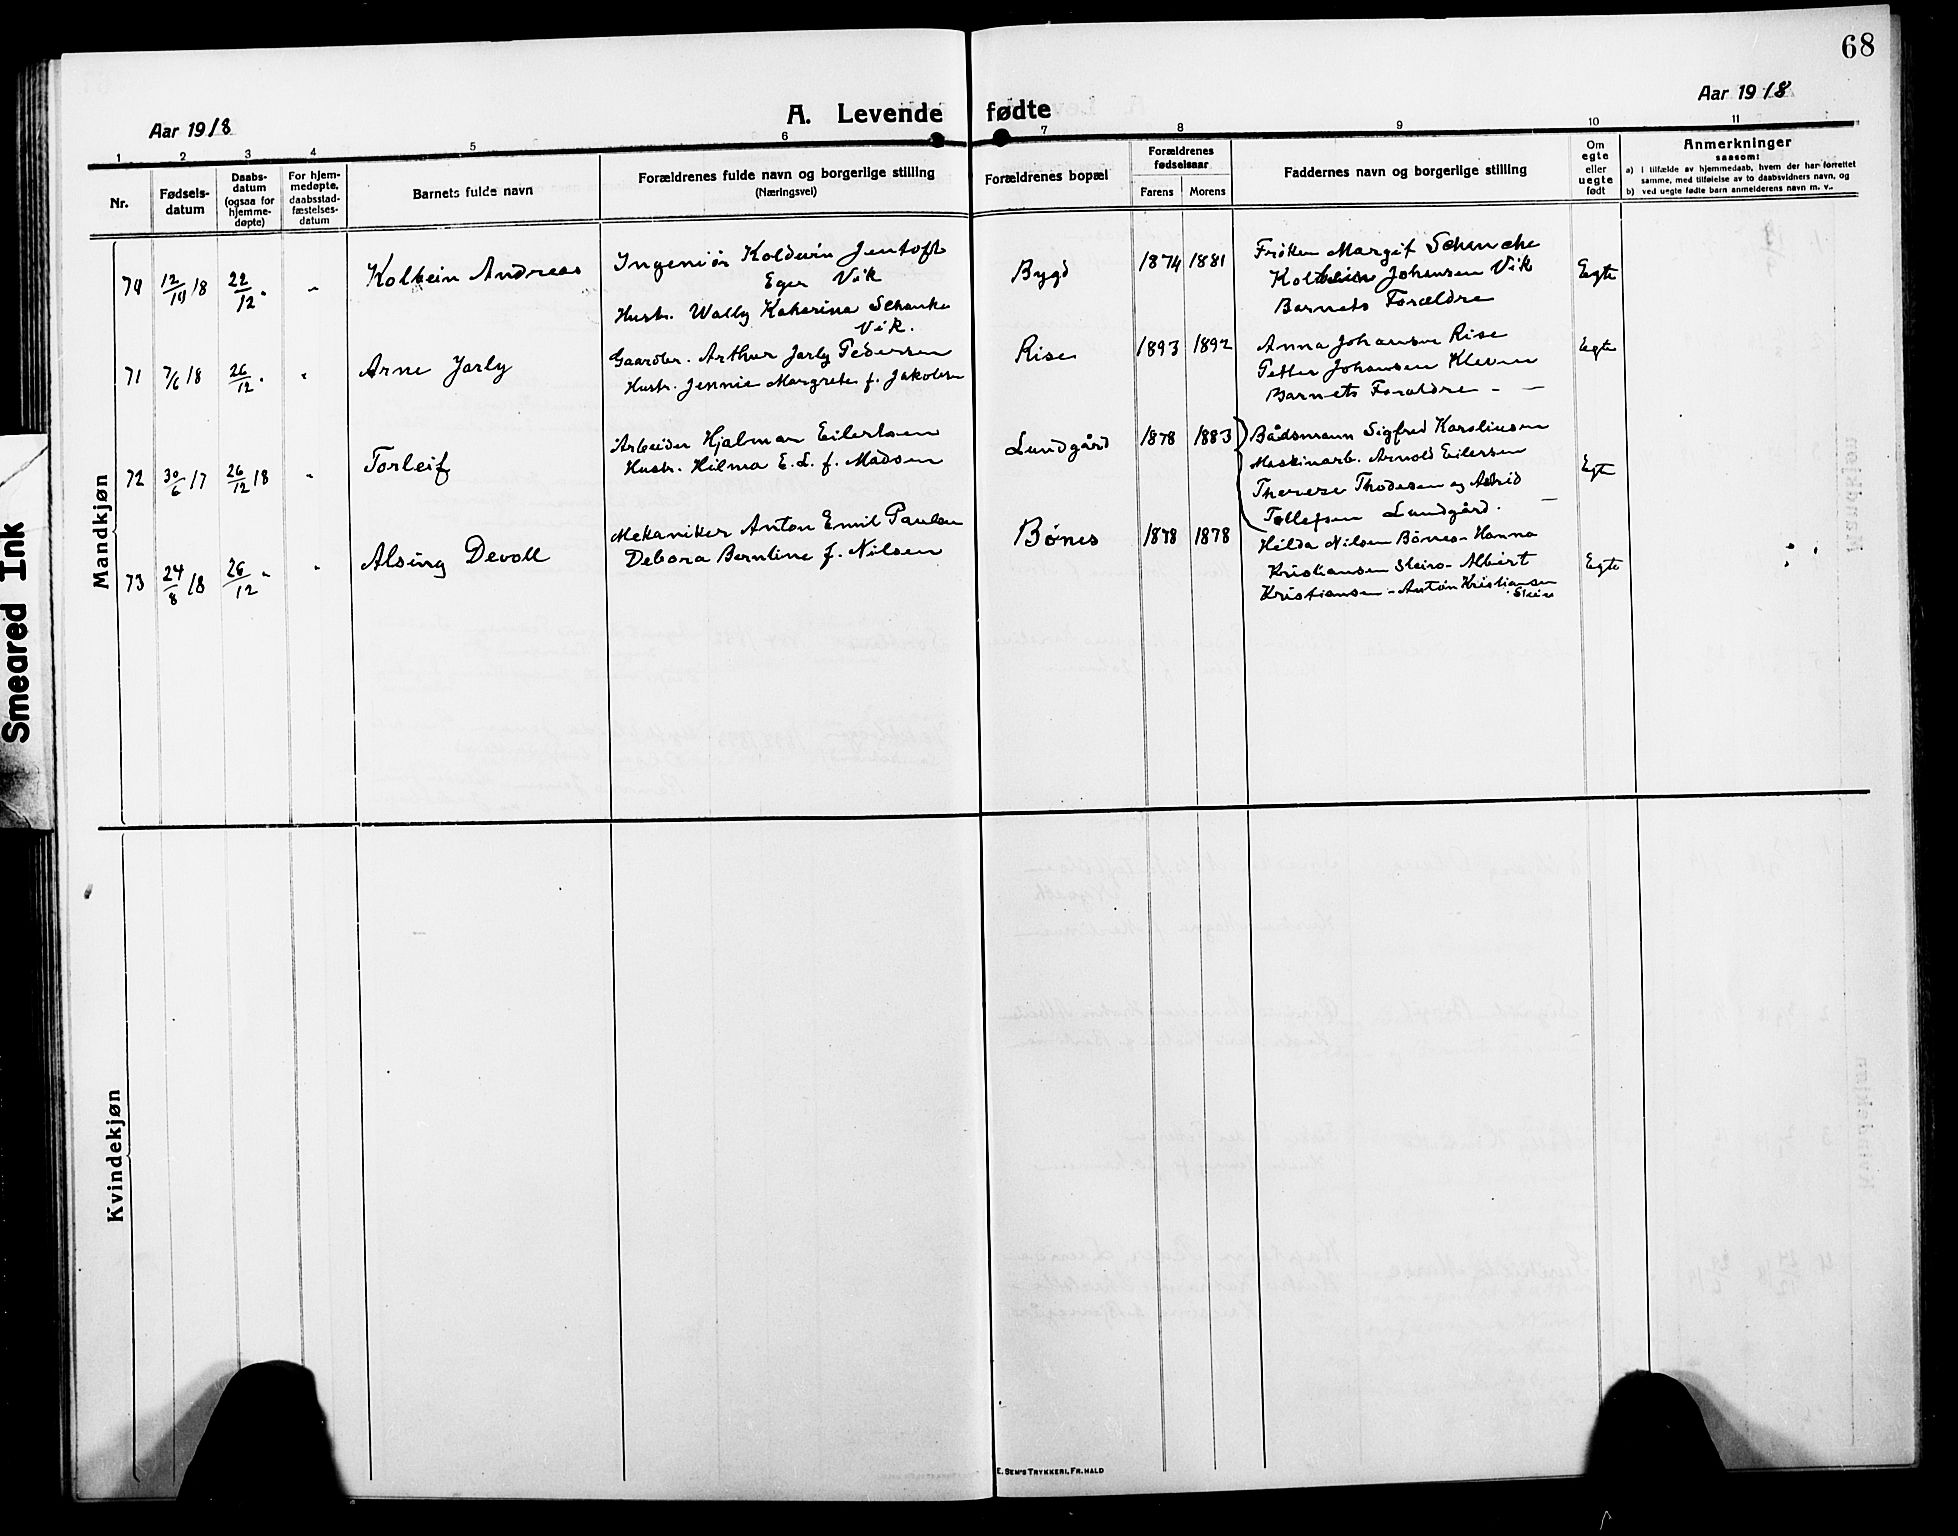 68
Aar 1918
A. Levende fødte
Aar 1918
1 2 3 4 5 6 7 8 9 10 11
Nr.
Fødsels-
datum
Daabs-
datum
(ogsaa for
hjemme-
døpte)
For hjem-
medøpte,
daabsstad-
fæstelses-
datum
Barnets fulde navn
Forældrenes fulde navn og borgerlige stilling
(Næringsvei)
Forældrenes bopæl
Forældrenes
fødselsaar
Farens Morens
Faddernes navn og borgerlige stilling
Om
egte
eller
uegte
født
Anmerkninger
saasom:
a) i tilfælde av hjemmedaab, hvem der har forrettet
samme, med tilføielse av to daabsvidners navn, og
b) ved uegte fødte barn anmelderens navn m. v..
Mandkjøn
70 12/10 18 22/12 " "
Kolbein Andreas
Ingeniør Koldevin Jentoft
Eger Vik
Hustr. Wally Katharina Schanke
Vik.
Bygd
1874 1881
Frøken Margit Schanche
Kolbein Johansen Vik
Barnets Forældre
Egte
71 7/6 18 26/12 " "
Arne Jarly
Gaardbr. Arthur Jarly Pedersen
Hustr. Jennie Margrete f. Jakobsen
Rise
1893 1892
Anna Johansen Rise
Petter Johansen Kleven
Barnets Forældre - -
Egte
72 30/6 17 26/12 18 "
Torleif
Arbeider Hjalmar Eilertsen
Hustr. Hilma E. L. f. Madsen
Lundgård
1878 1883
Bådsmann Sigfred Karoliusen
Maskinarb. Arnold Eilersen
Therese Thodesen og Astrid
Tollefsen Lundgård. -
Egte
73 24/8 18 26/12 " "
Alsing Devoll
Mekaniker Anton Emil Paulsen
Debora Berntine f. Nilsen
Bönes
1878 1878
Hilda Nilsen Bönes - Hanna
Kristiansen Steiro - Albert
Kristiansen - Anton Kristiansen
Steiro
Egte
Kvindekjøn
E. SEM'S TRYKKERI, FR.HALD
Smeared Ink